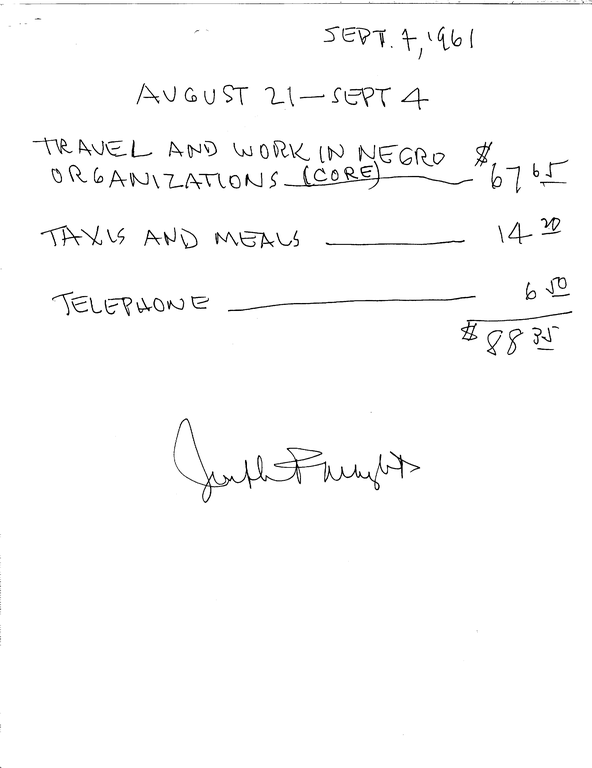 SEPT. 7, 1961
AUGUST 21 — SEPT 4
TRAVEL AND WORK IN NEGRO $
ORGANIZATIONS (CORE) — 67 65
TAXIS AND MEALS — 14 20
TELEPHONE — 6 50
$ 88 35